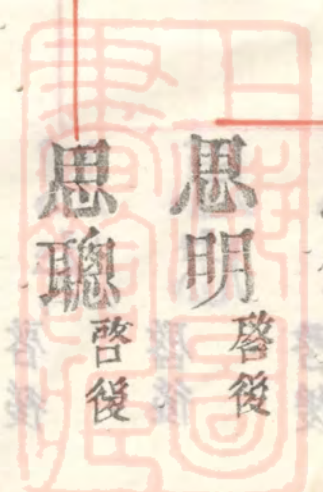 思明 啓後
思聰 啓後